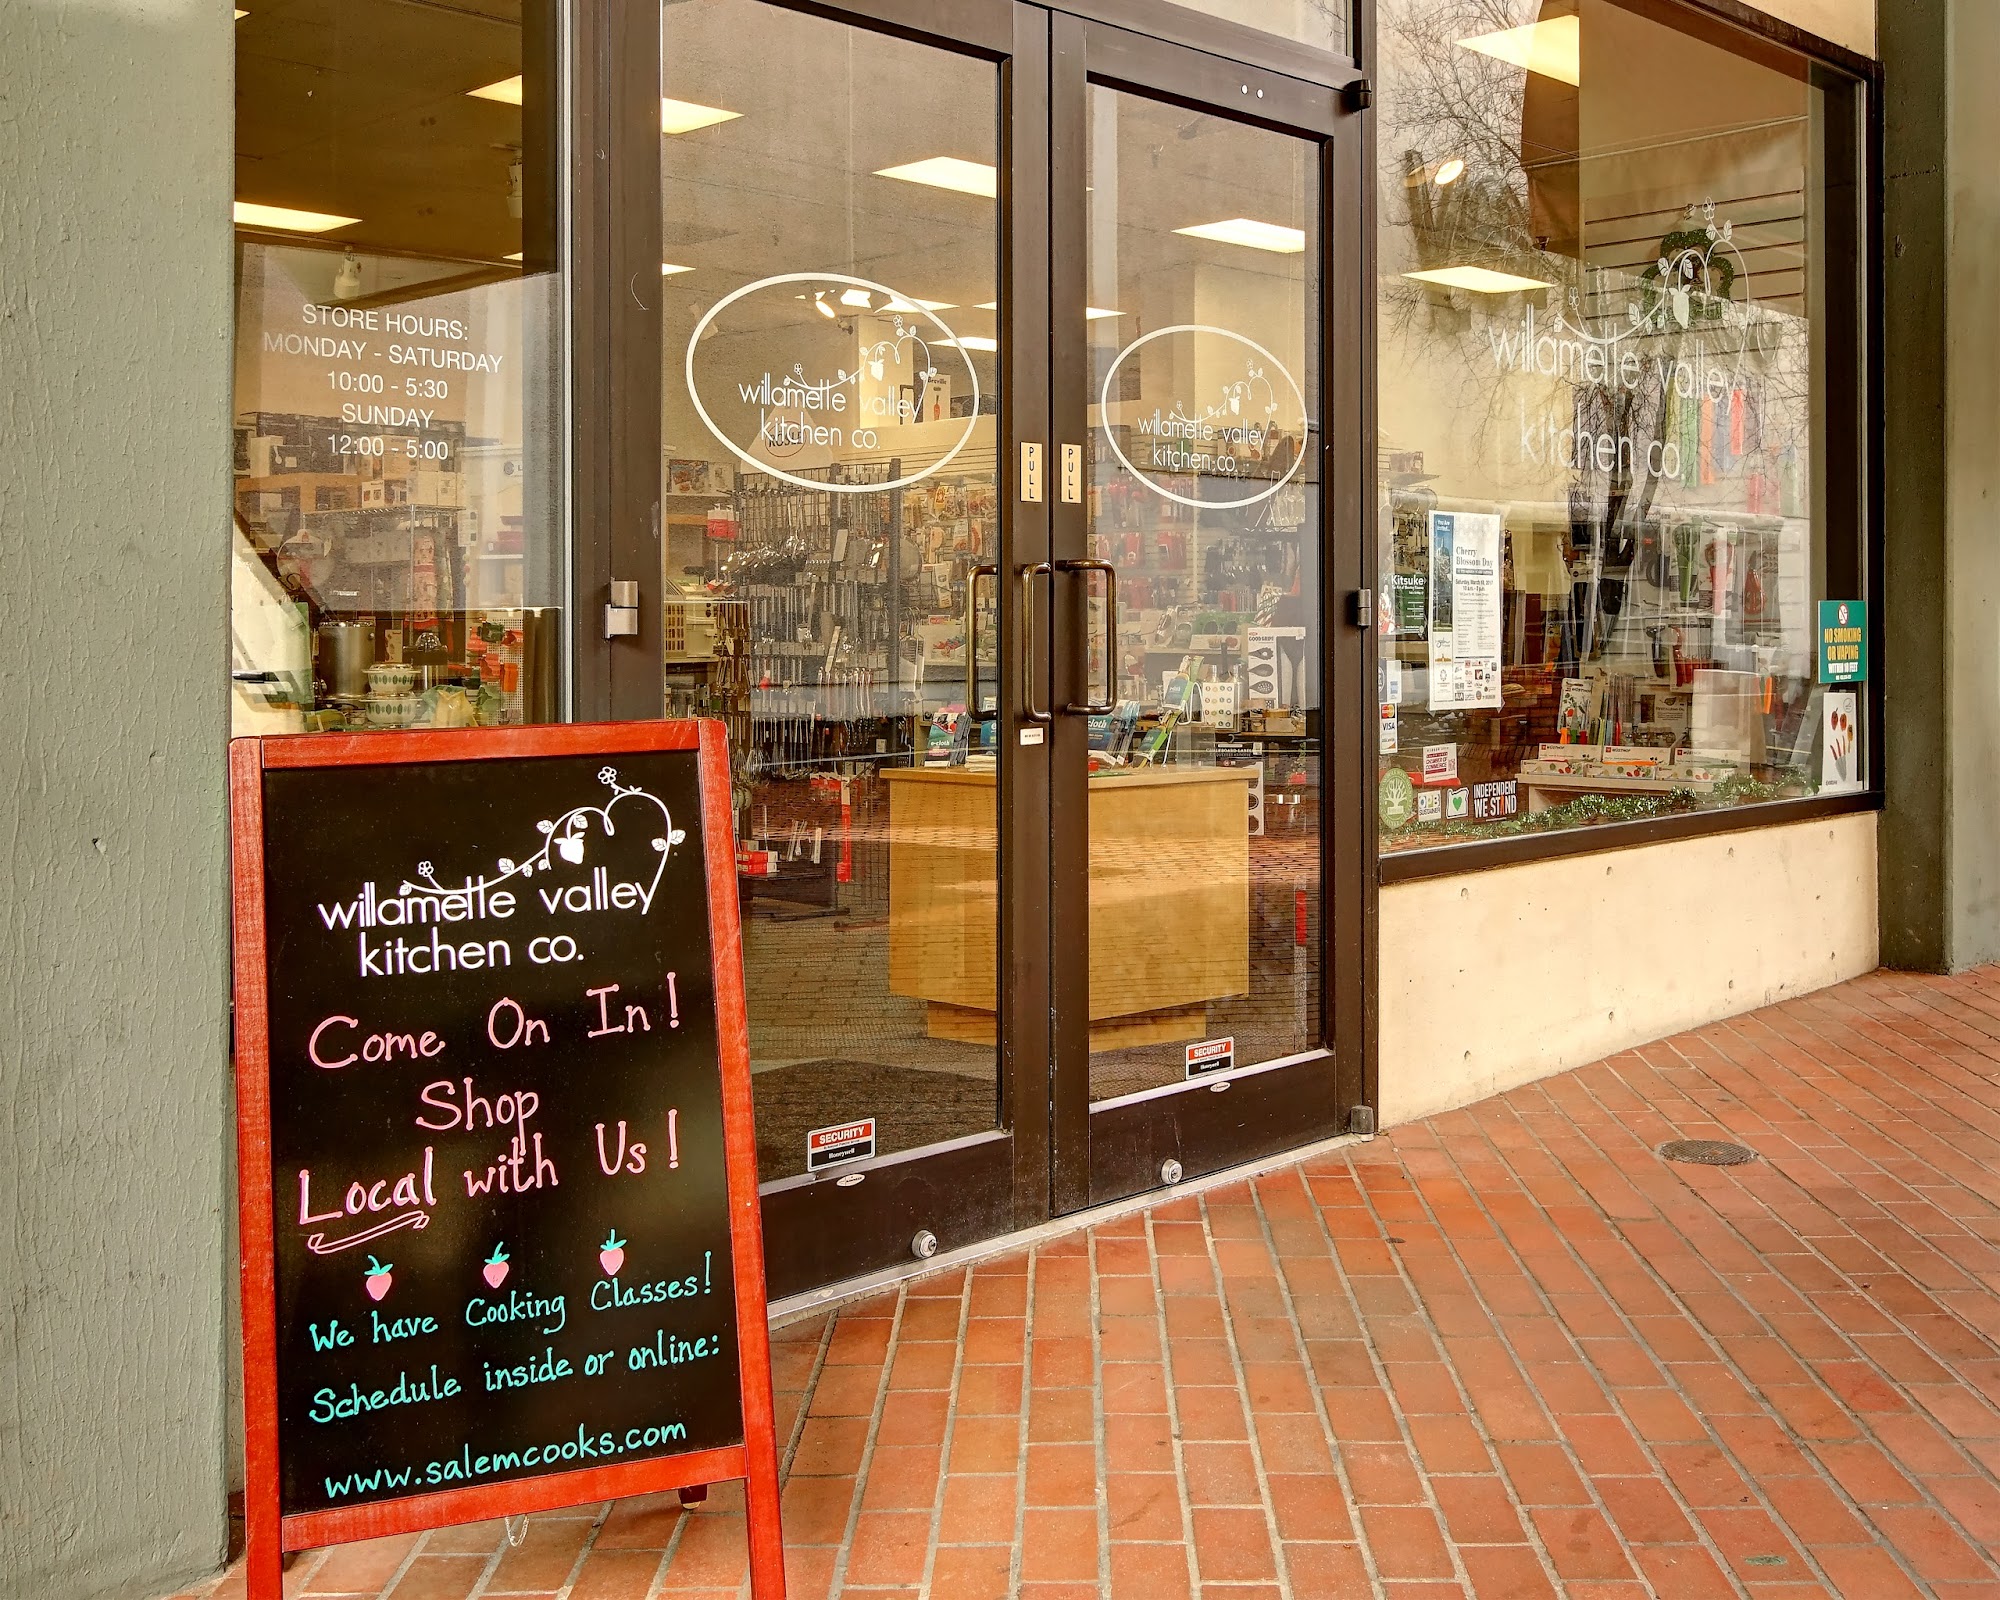 STORE HOURS:
MONDAY - SATURDAY
10:00 - 5:30
SUNDAY
12:00 - 5:00
willamette valley
kitchen co.
PULL
PULL
willamette valley
kitchen co.
willamette valley
kitchen co.
Cherry
Blossom Day
Kitsuke
NO SMOKING
OR VAPING
WITHIN 10 FEET
VISA
INDEPENDENT
WE STAND
GOOD GRIPS
e-cloth
SECURITY
Honeywell
SECURITY
Honeywell
willamette valley
kitchen co.
Come On In!
Shop
Local with Us!
We have Cooking Classes!
Schedule inside or online:
www.salemcooks.com